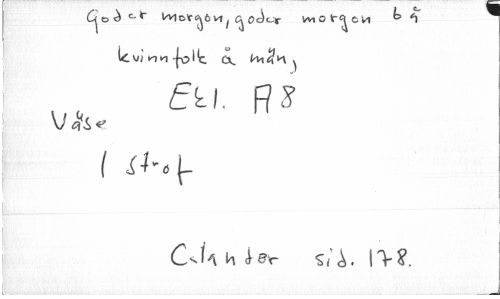 Goder morgon, goder morgon bå
kvinnfolk å män,
Etl. A8
Väse
1 strof
Celander sid. 178.